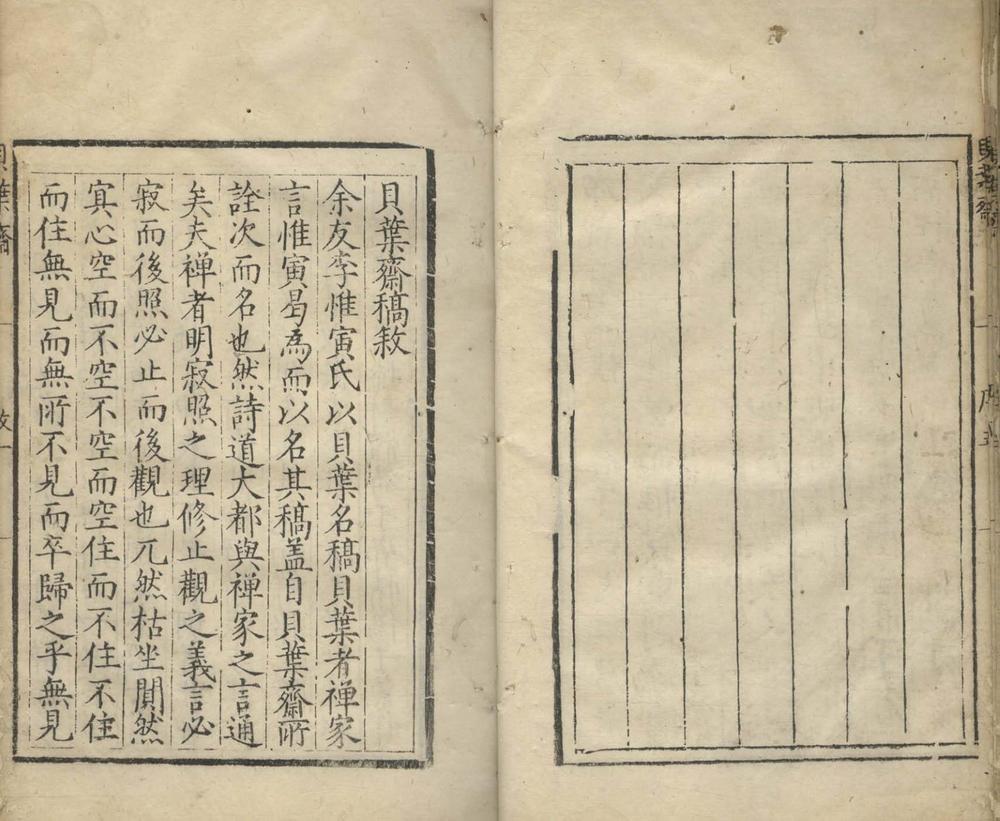 貝葉齋稿敘
余友李惟寅氏以貝葉名稿貝葉者禅家
言惟寅曷為而以名其稿盖自貝葉齋所
詮次而名也然詩道大都與禅家之言通
矣夫禅者明寂照之理修止觀之義言必
寂而後照必止而後觀也兀然枯坐閴然
寘心空而不空不空而空住而不住不住
而住無見而無所不見而卒歸之乎無見
貝葉齋
敘一